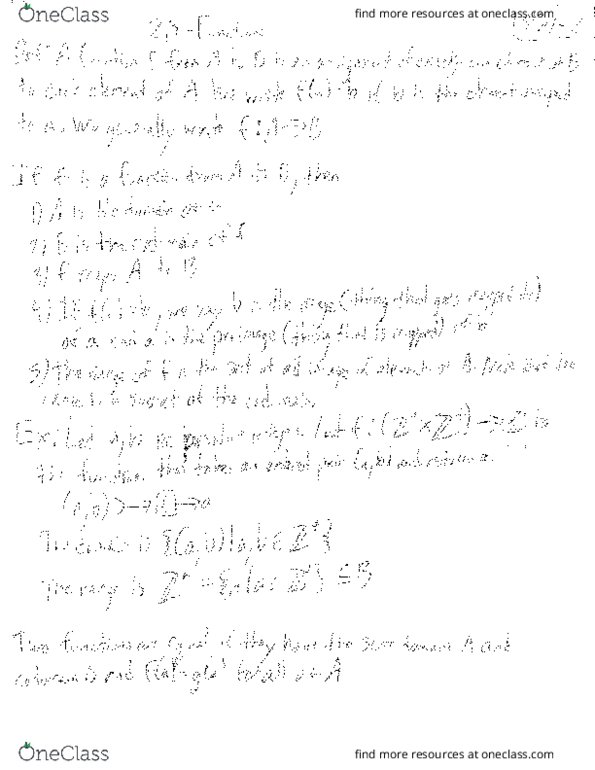 OneClass
find more resources at oneclass.com
2.3 - Functions
Def: A function f from A to B is an assignment of exactly one element of B
to each element of A. We write f(a)=b if b is the element mapped
to a. We generally write f: A→B
If f is a function from A to B, then
1) A is the domain of f
2) B is the codomain of f
3) f maps A to B
4) If f(a)=b, we say b is the image (thing that gets mapped to)
of a and a is the preimage (thing that is mapped) of b
5) The range of f is the set of all images of elements of A. Note that the
range is a subset of the codomain.
Ex. Let a,b be positive integers. Let f: (Z⁺×Z⁺)→Z be
the function that takes an ordered pair (a,b) and returns a.
(a,b)
The domain is {(a,b)|a,b∈Z⁺}
The range is Z⁺ = {a|a∈Z⁺} ⊆ B
Two functions are equal if they have the same domain A and
codomain B and f(a)=g(a) for all a∈A
OneClass
find more resources at oneclass.com